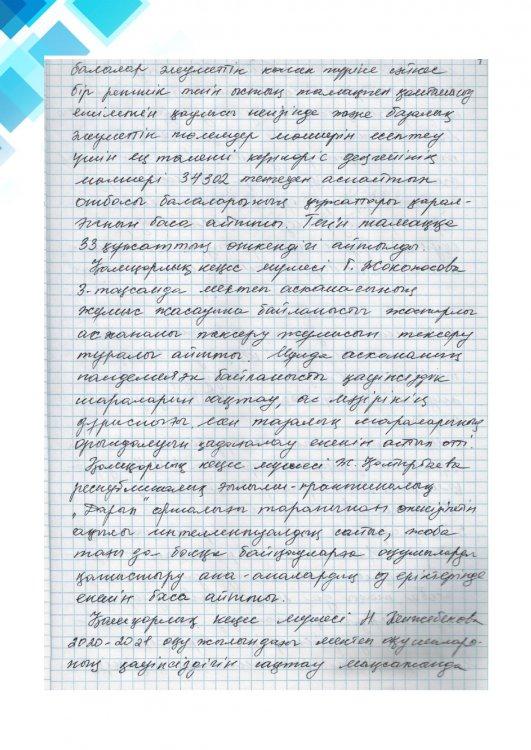 балалар әлеуметтік көмек түріне сәйкес
бір реттік тегін ыстық тамақпен қамтамасыз
етілетін қаулысы негізінде және базалық
әлеуметтік төлемдер мөлшерін есептеу
үшін ең төменгі күнкөріс деңгейінің
мөлшері 34302 теңгеден аспайтын
отбасы балаларының құжаттары қарал-
ғанын баса айтты. Тегін тамаққа
33 құжаттың өткендігі айтылды.
Қамқорлық кеңес мүшесі Г.
3-тоқсанда мектеп асханасының
жұмыс жасауына байланысты жоспарлы
асхананы тексеру жұмысын тексеру
туралы айтты. Мұнда асхананың
пандемияға байланысты қауіпсіздік
шараларын сақтау, ас мәзірінің
дұрыстығы мен тазалық шараларының
орындалуын қадағалау екенін айтып өтті.
Қамқорлық кеңес мүшесі Ж.
республикалық ғылыми-практикалық
„Дарын" орталығы тарапынан өткізілетін
ақылы интеллектуалдық сайыс, жоба
тағы да басқа байқауларға оқушыларды
қатыстыру ата-аналардың өз еріктерінде
екенін баса айтты.
Қамқорлық кеңес мүшесі Н.
2020-2021 оқу жылындағы мектеп оқушылары-
ның қауіпсіздігін сақтау мақсатында